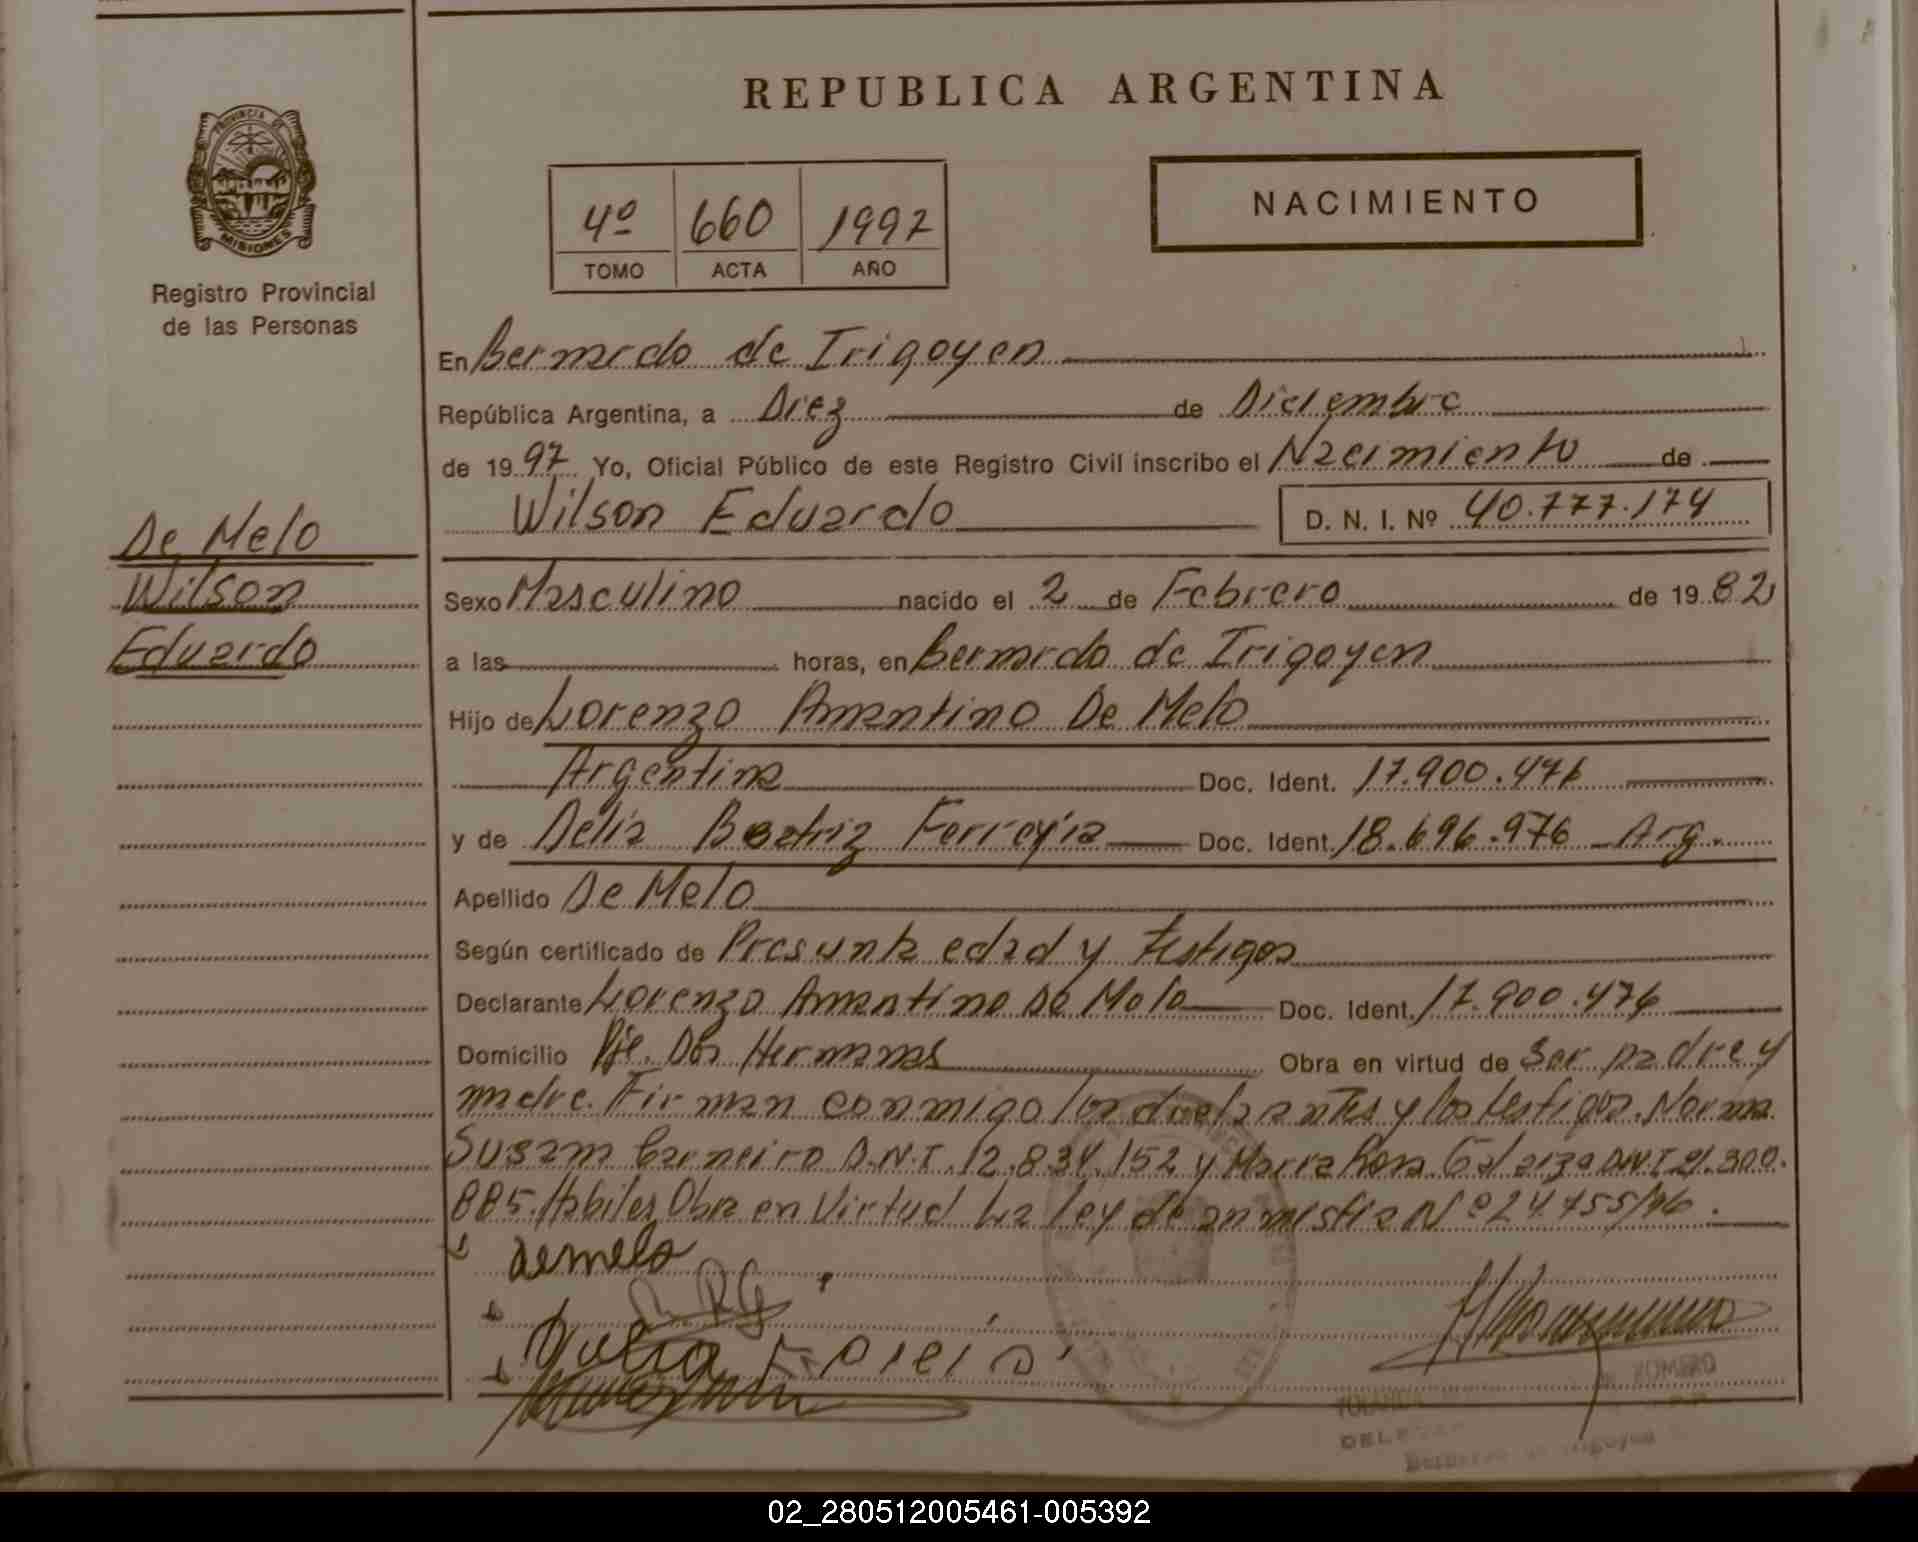 REPUBLICA ARGENTINA
PROVINCIA DE
MISIONES
Registro Provincial
de las Personas
4º 660 1997
TOMO ACTA AÑO
NACIMIENTO
En Bernardo de Irigoyen
República Argentina, a Diez de Diciembre
de 1997 Yo, Oficial Público de este Registro Civil inscribo el Nacimiento de
Wilson Eduardo D. N. I. Nº 40.777.174
De Melo
Wilson
Eduardo
Sexo Masculino nacido el 2 de Febrero de 1982
a las horas, en Bernardo de Irigoyen
Hijo de Lorenzo Amantino De Melo
Argentina Doc. Ident. 17.900.476
y de Delia Beatriz Ferreyra Doc. Ident. 18.696.976 Arg.
Apellido De Melo
Según certificado de Presunta edad y testigos
Declarante Lorenzo Amantino De Melo Doc. Ident. 17.900.476
Domicilio Pje. Dos Hermanas Obra en virtud de ser padre y
madre. Firman conmigo los declarantes y los testigos. Norma
Susana Carneiro D.N.I. 12.834.152 y Maria Rosa Galarza D.N.I 21.300.
885. Habiles Obra en Virtud La ley de amnistia Nº 24.755/96.
demelo
DELEGAD
02_280512005461-005392